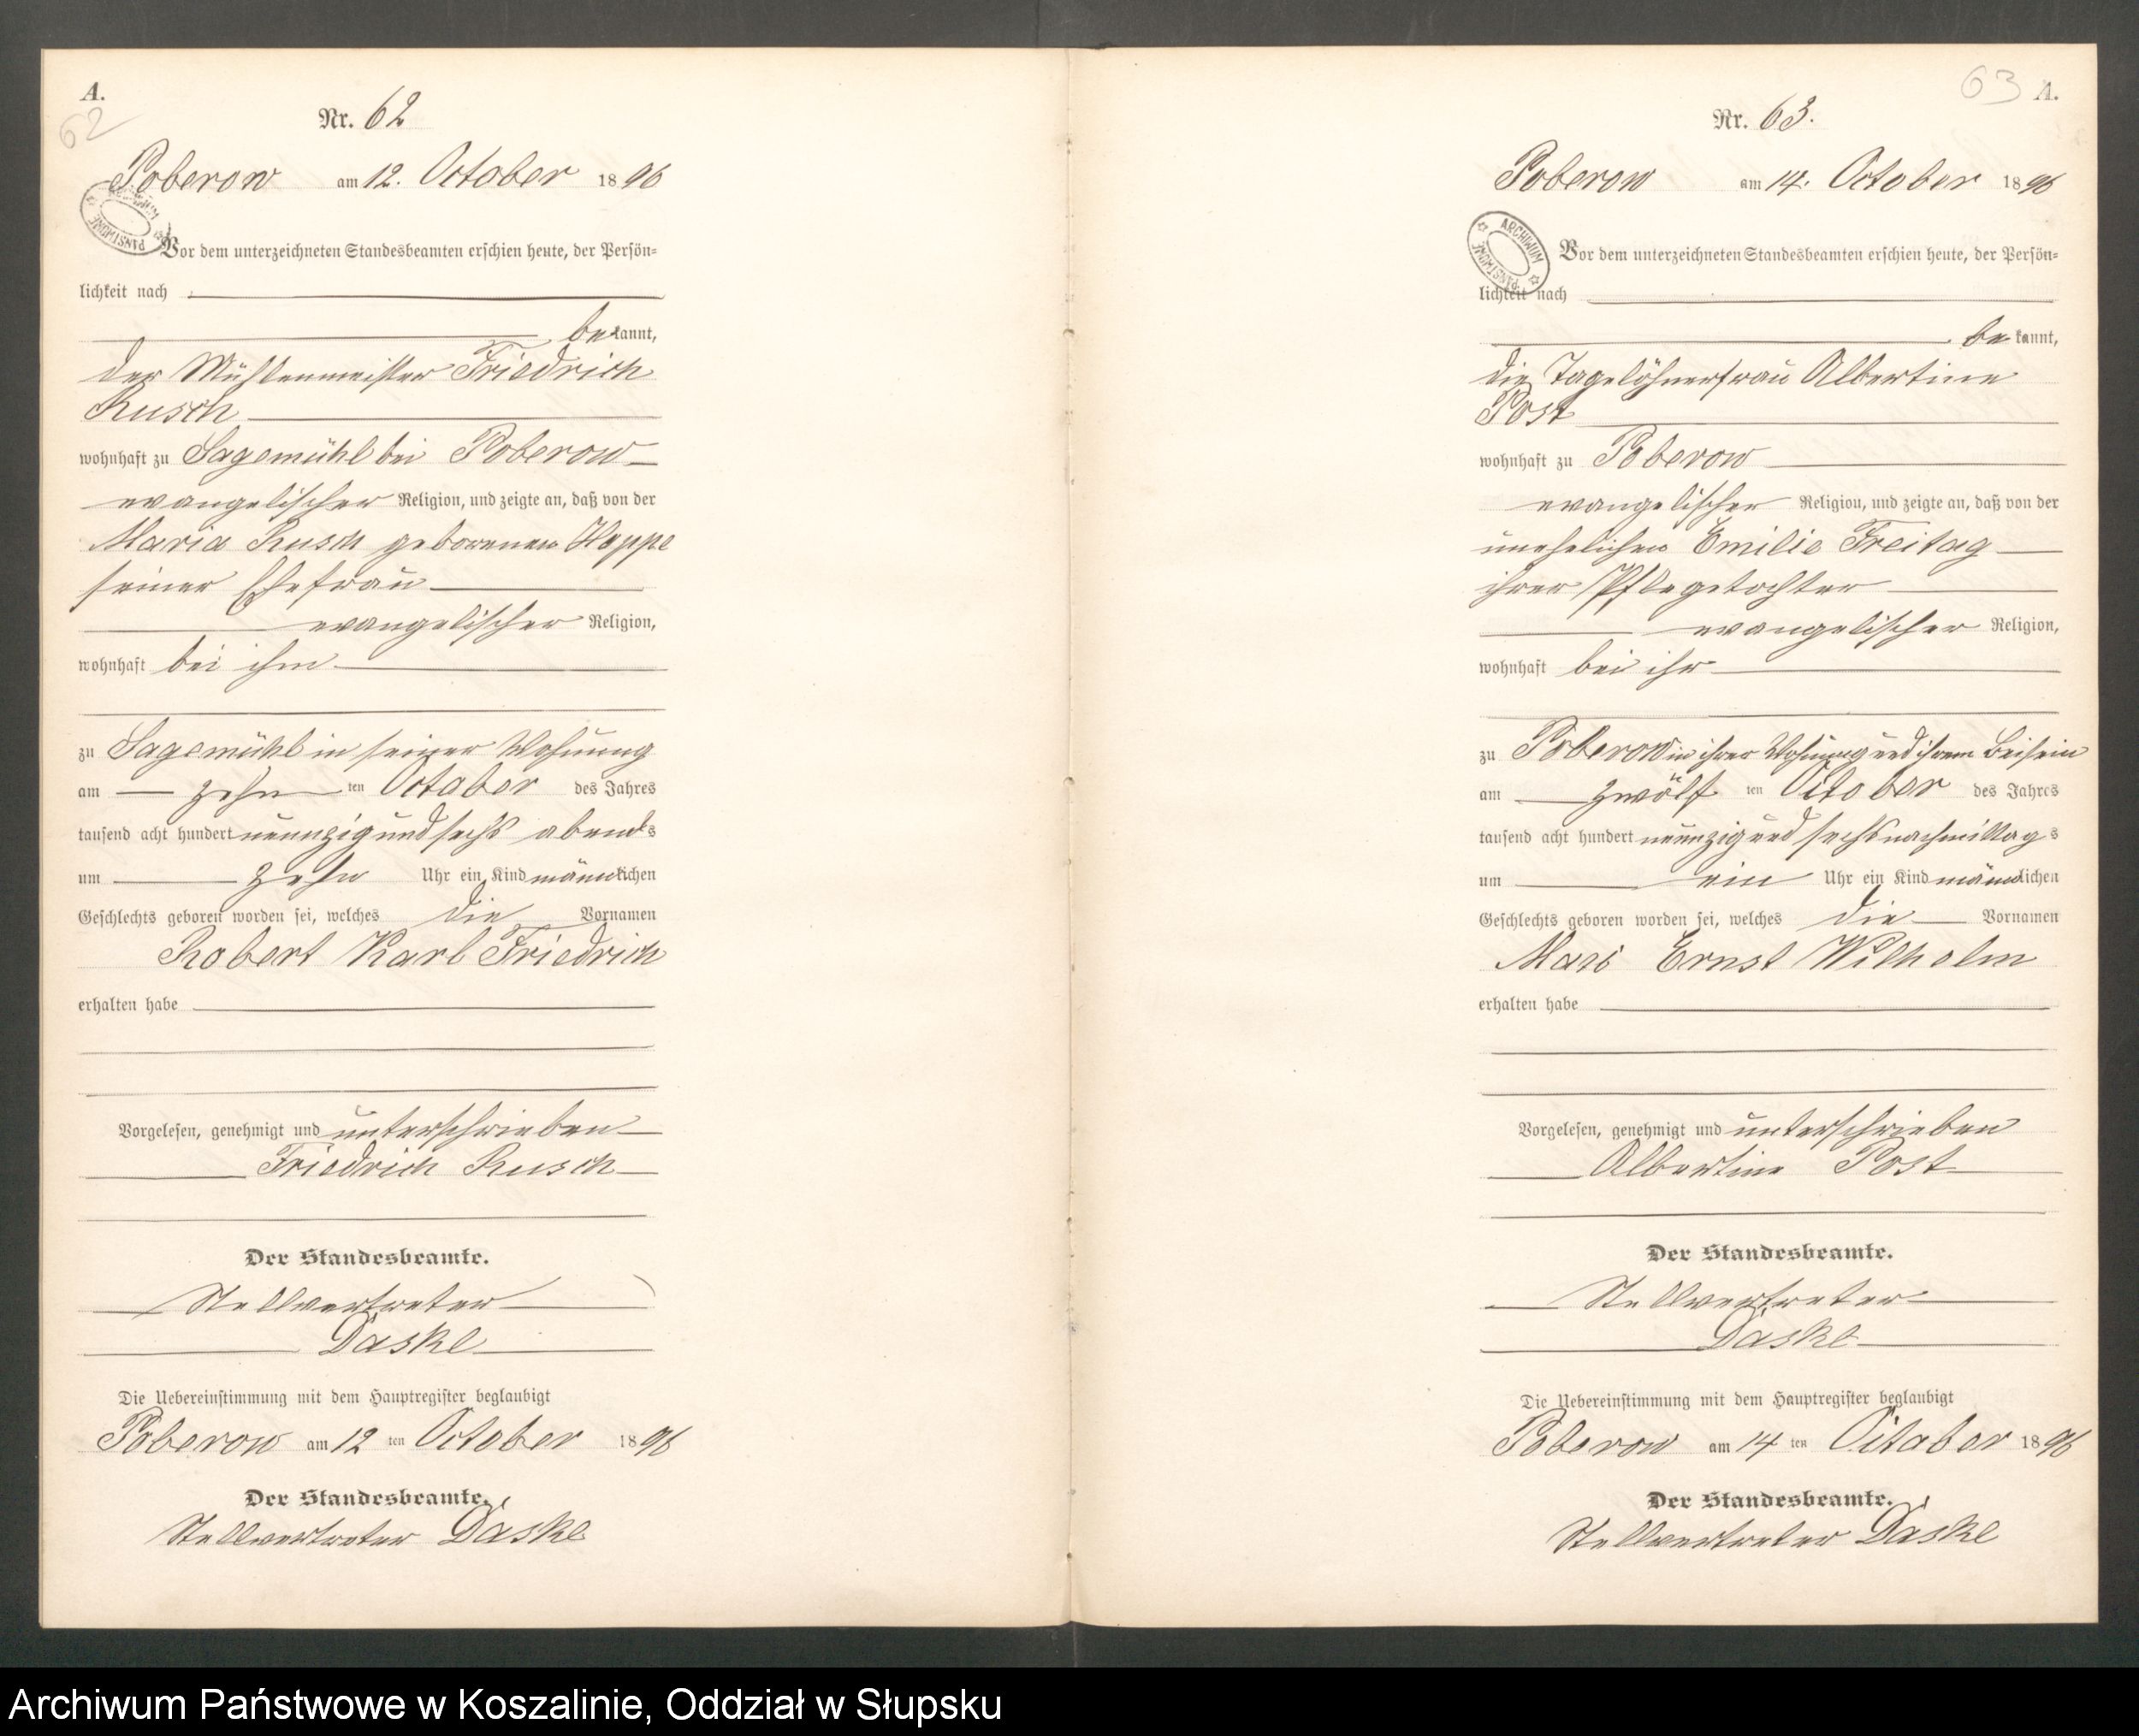 A.
62
Nr. 62
Poberow am 12. October 1896
ARCHIWUM PAŃSTWOWE
Vor dem unterzeichneten Standesbeamten erschien heute, der Persön-
lichkeit nach
bekannt,
der Mühlenmeister Friedrich
Rusch
wohnhaft zu Sagemühl bei Poberow
evangelischer Religion, und zeigte an, daß von der
Maria Rusch geborenen Hoppe
seiner Ehefrau
evangelischer Religion,
wohnhaft bei ihm
zu Sagemühl in seiner Wohnung
am zehn ten October des Jahres
tausend acht hundert neunzig und sechs abends
um zehn Uhr ein Kind männlichen
Geschlechts geboren worden sei, welches die Vornamen
Robert Karl Friedrich
erhalten habe
Vorgelesen, genehmigt und unterschrieben
Friedrich Rusch
Der Standesbeamte.
Stellvertreter
Daske
Die Uebereinstimmung mit dem Hauptregister beglaubigt
Poberow am 12 ten October 1896
Der Standesbeamte.
Stellvertreter Daske
63 A.
Nr. 63.
Poberow am 14. October 1896
ARCHIWUM PAŃSTWOWE
Vor dem unterzeichneten Standesbeamten erschien heute, der Persön-
lichkeit nach
bekannt,
die Tagelöhnerfrau Albertine
Post
wohnhaft zu Poberow
evangelischer Religion, und zeigte an, daß von der
unehelichen Emilie Freitag
ihrer Pflegetochter
evangelischer Religion,
wohnhaft bei ihr
zu Poberow in ihrer Wohnung und ihrem Beisein
am zwölf ten October des Jahres
tausend acht hundert neunzig und sechs nachmittags
um ein Uhr ein Kind männlichen
Geschlechts geboren worden sei, welches die Vornamen
Ernst Wilhelm
erhalten habe
Vorgelesen, genehmigt und unterschrieben
Albertine Post
Der Standesbeamte.
Stellvertreter
Daske
Die Uebereinstimmung mit dem Hauptregister beglaubigt
Poberow am 14 ten October 1896
Der Standesbeamte.
Stellvertreter Daske
Archiwum Państwowe w Koszalinie, Oddział w Słupsku